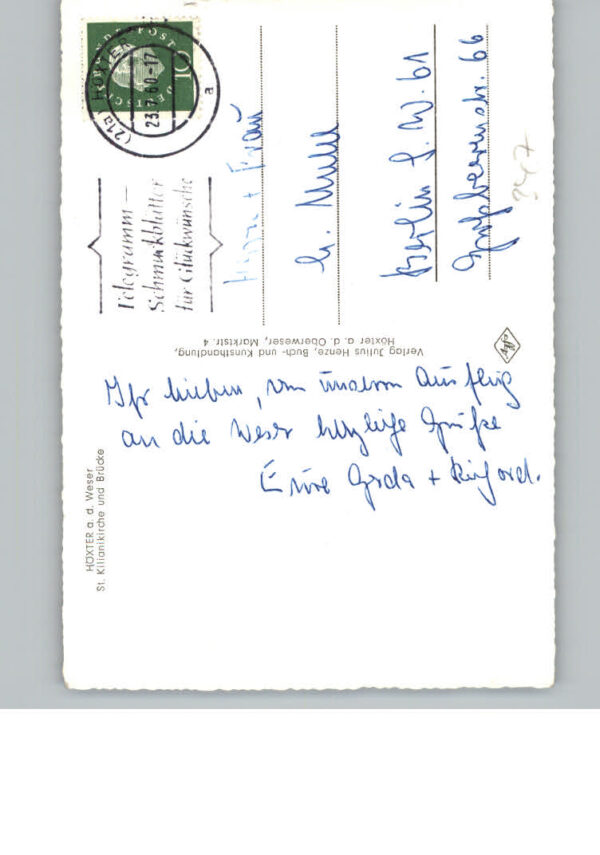 HÖXTER a. d. Weser
St. Kilianikirche und Brücke
Ihr Lieben, von unserem Ausflug
an die Weser herzliche Grüße
Eure Gerda +
(21a) HÖXTER
23.7.60-17
a
DEUTSCHE BUNDESPOST
10
Telegramm —
Schmuckblätter
für Glückwünsche
+ Frau
Berlin S. W. 61
Großbeerenstr. 66
Verlag Julius Henze, Buch- und Kunsthandlung,
Höxter a. d. Oberweser, Marktstr. 4